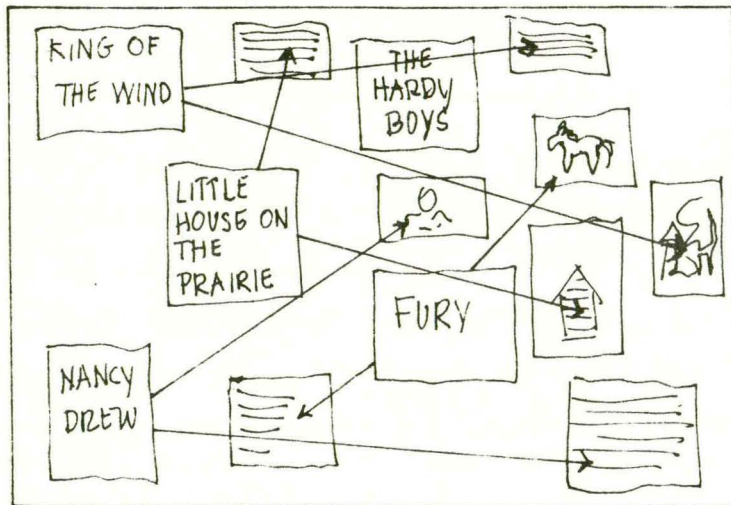 KING OF
THE WIND
THE
HARDY
BOYS
LITTLE
HOUSE ON
THE
PRAIRIE
FURY
NANCY
DREW